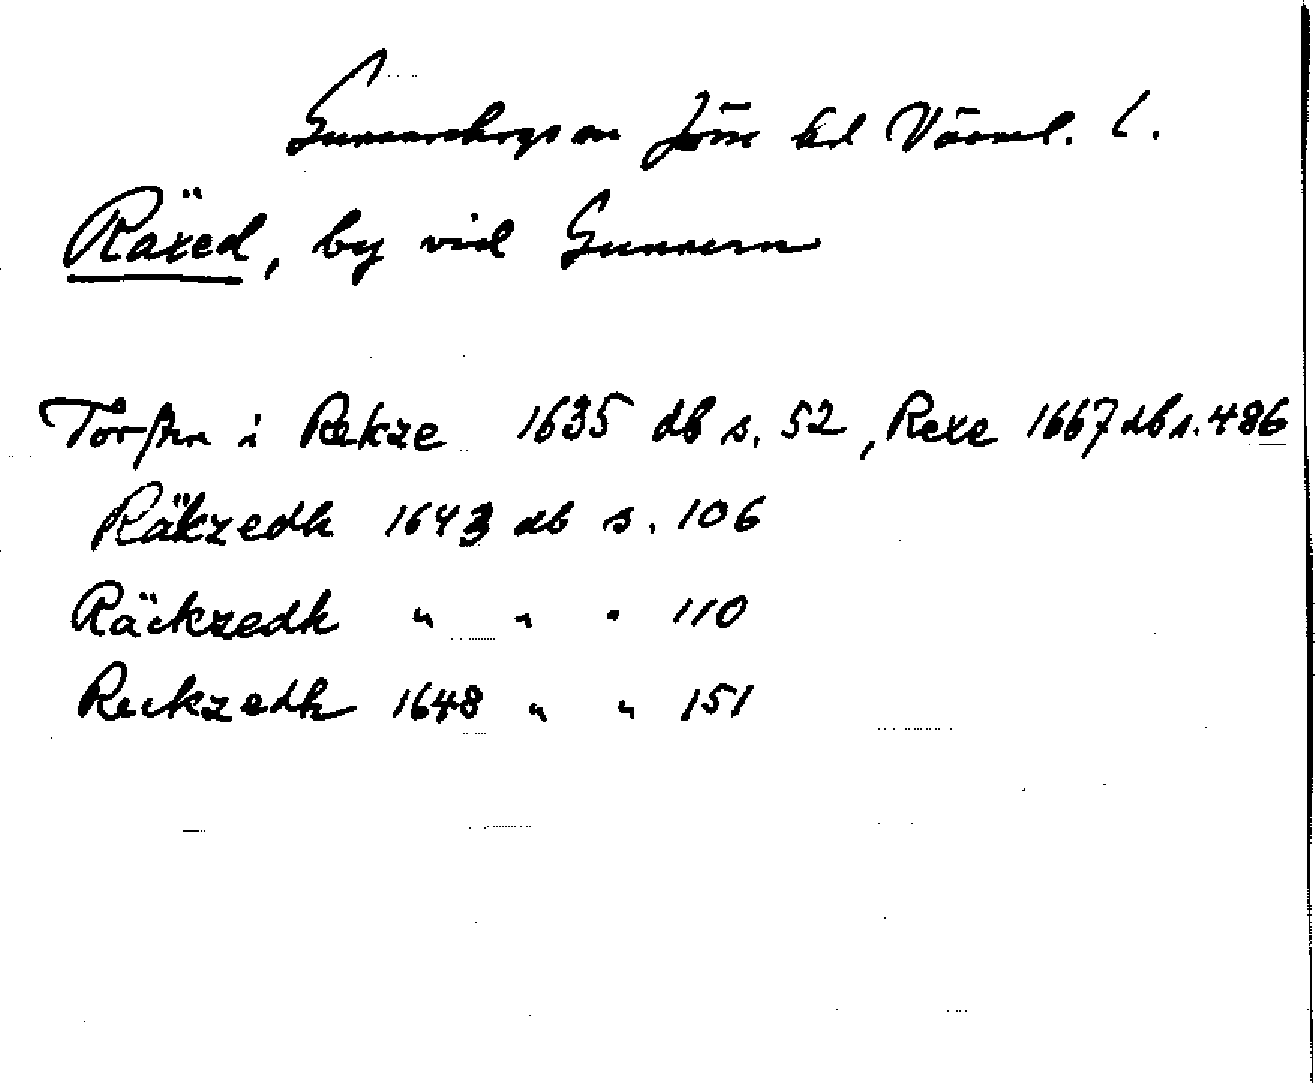 Gunnarskogs sn Jösse hd Värml. l.
Räxed, by vid Gunnern
Torsten i Rekze 1635 db s. 52, Rexe 1667 db s. 486
Räkzedh 1643 db s. 106
Räckzedh " " " 110
Reckzedh 1648 " " 151